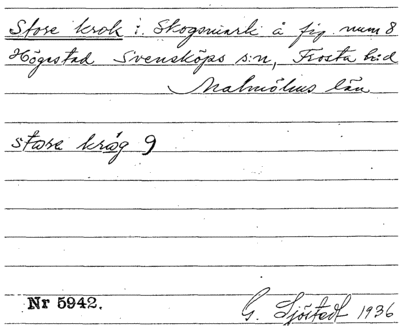 Store krok i Skogsmark å fig. num 8
Högastad Svensköps s:n, Frosta hd
Malmöhus län
store kråg 9
Nr 5942. G. Sjöstedt 1936